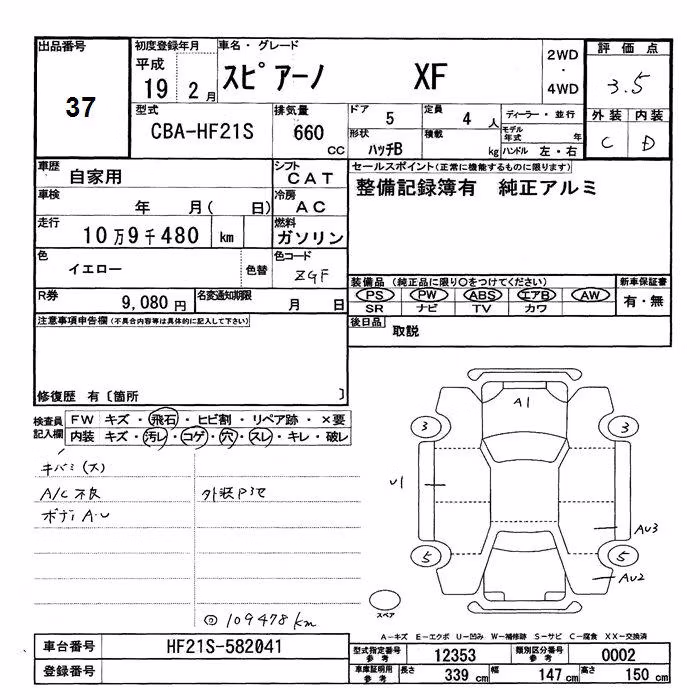 出品番号 初度登録年月 車名・グレード 2WD・4WD 評価点
37 平成19 2月 スピアーノ XF 3.5
型式 排気量 ドア 5 定員 4人 ディーラー・並行 外装 内装
CBA-HF21S 660CC 形状 ハッチB 積載 kg モデル年式 年 ハンドル 左・右 C D
車歴 自家用 シフト CAT セールスポイント(正常に機能するものに限ります)
車検 年 月( 日) 冷房 AC 整備記録簿有 純正アルミ
走行 10万9千480 km 燃料 ガソリン
色 イエロー 色替 色コード ZGF
装備品(純正品に限り○をつけてください) 新車保証書
R券 9,080円 名変通知期限 月 日 PS PW ABS エアB AW 有・無
SR ナビ TV カワ
注意事項申告欄(不具合内容等は具体的に記入して下さい) 後日品 取説
修復歴 有〔箇所 〕
検査員記入欄 FW キズ・飛石・ヒビ割・リペア跡・×要
内装 キズ・汚レ・コゲ・穴・スレ・キレ・破レ
キバミ(大)
A/C不良 外装
ボディA・U
◎109478km
A1
3 3
U1
AU3
5 5
AU2
スペア
A-キズ E-エクボ U-凹み W-補修跡 S-サビ C-腐食 XX-交換済
車台番号 HF21S-582041 型式指定番号参考 12353 類別区分番号参考 0002
登録番号 車庫証明用参考 長さ 339cm 幅 147cm 高さ 150cm